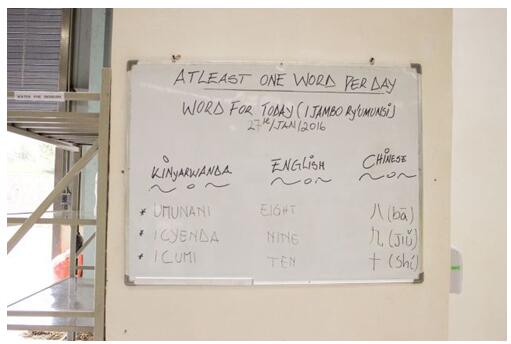 ATLEAST ONE WORD PER DAY
WORD FOR TODAY (IJAMBO RY'UMUNSI)
27th/JAN/2016
KINYARWANDA ENGLISH CHINESE
* UMUNANI EIGHT 八 (bā)
* ICYENDA NINE 九 (JIǓ)
* ICUMI TEN 十 (Shí)